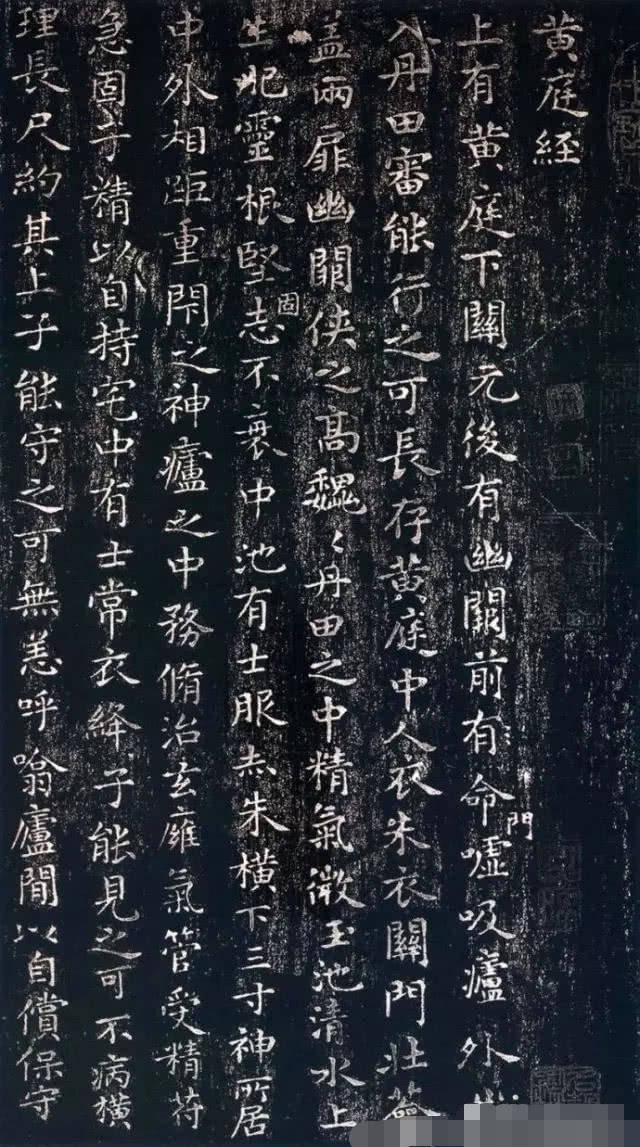 黃庭經
上有黃庭下關元後有幽闕前有命門噓吸廬外出
入丹田審能行之可長存黃庭中人衣朱衣關門壯籥
蓋兩扉幽闕俠之高魏〻丹田之中精氣微玉池清水上
生肥靈根堅固志不衰中池有士服赤朱橫下三寸神所居
中外相距重閇之神廬之中務脩治玄𤸫氣管受精符
急固子精以自持宅中有士常衣絳子能見之可不病橫
理長尺約其上子能守之可無恙呼噏廬間以自償保守